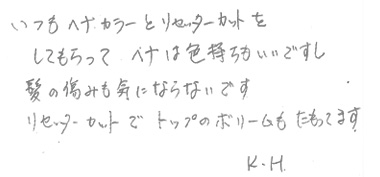 いつもヘナカラーとリセッターカットを
してもらって ヘナは色持ちもいいですし
髪の傷みも気にならないです
リセッターカットで トップのボリームも たもってます
K.H.